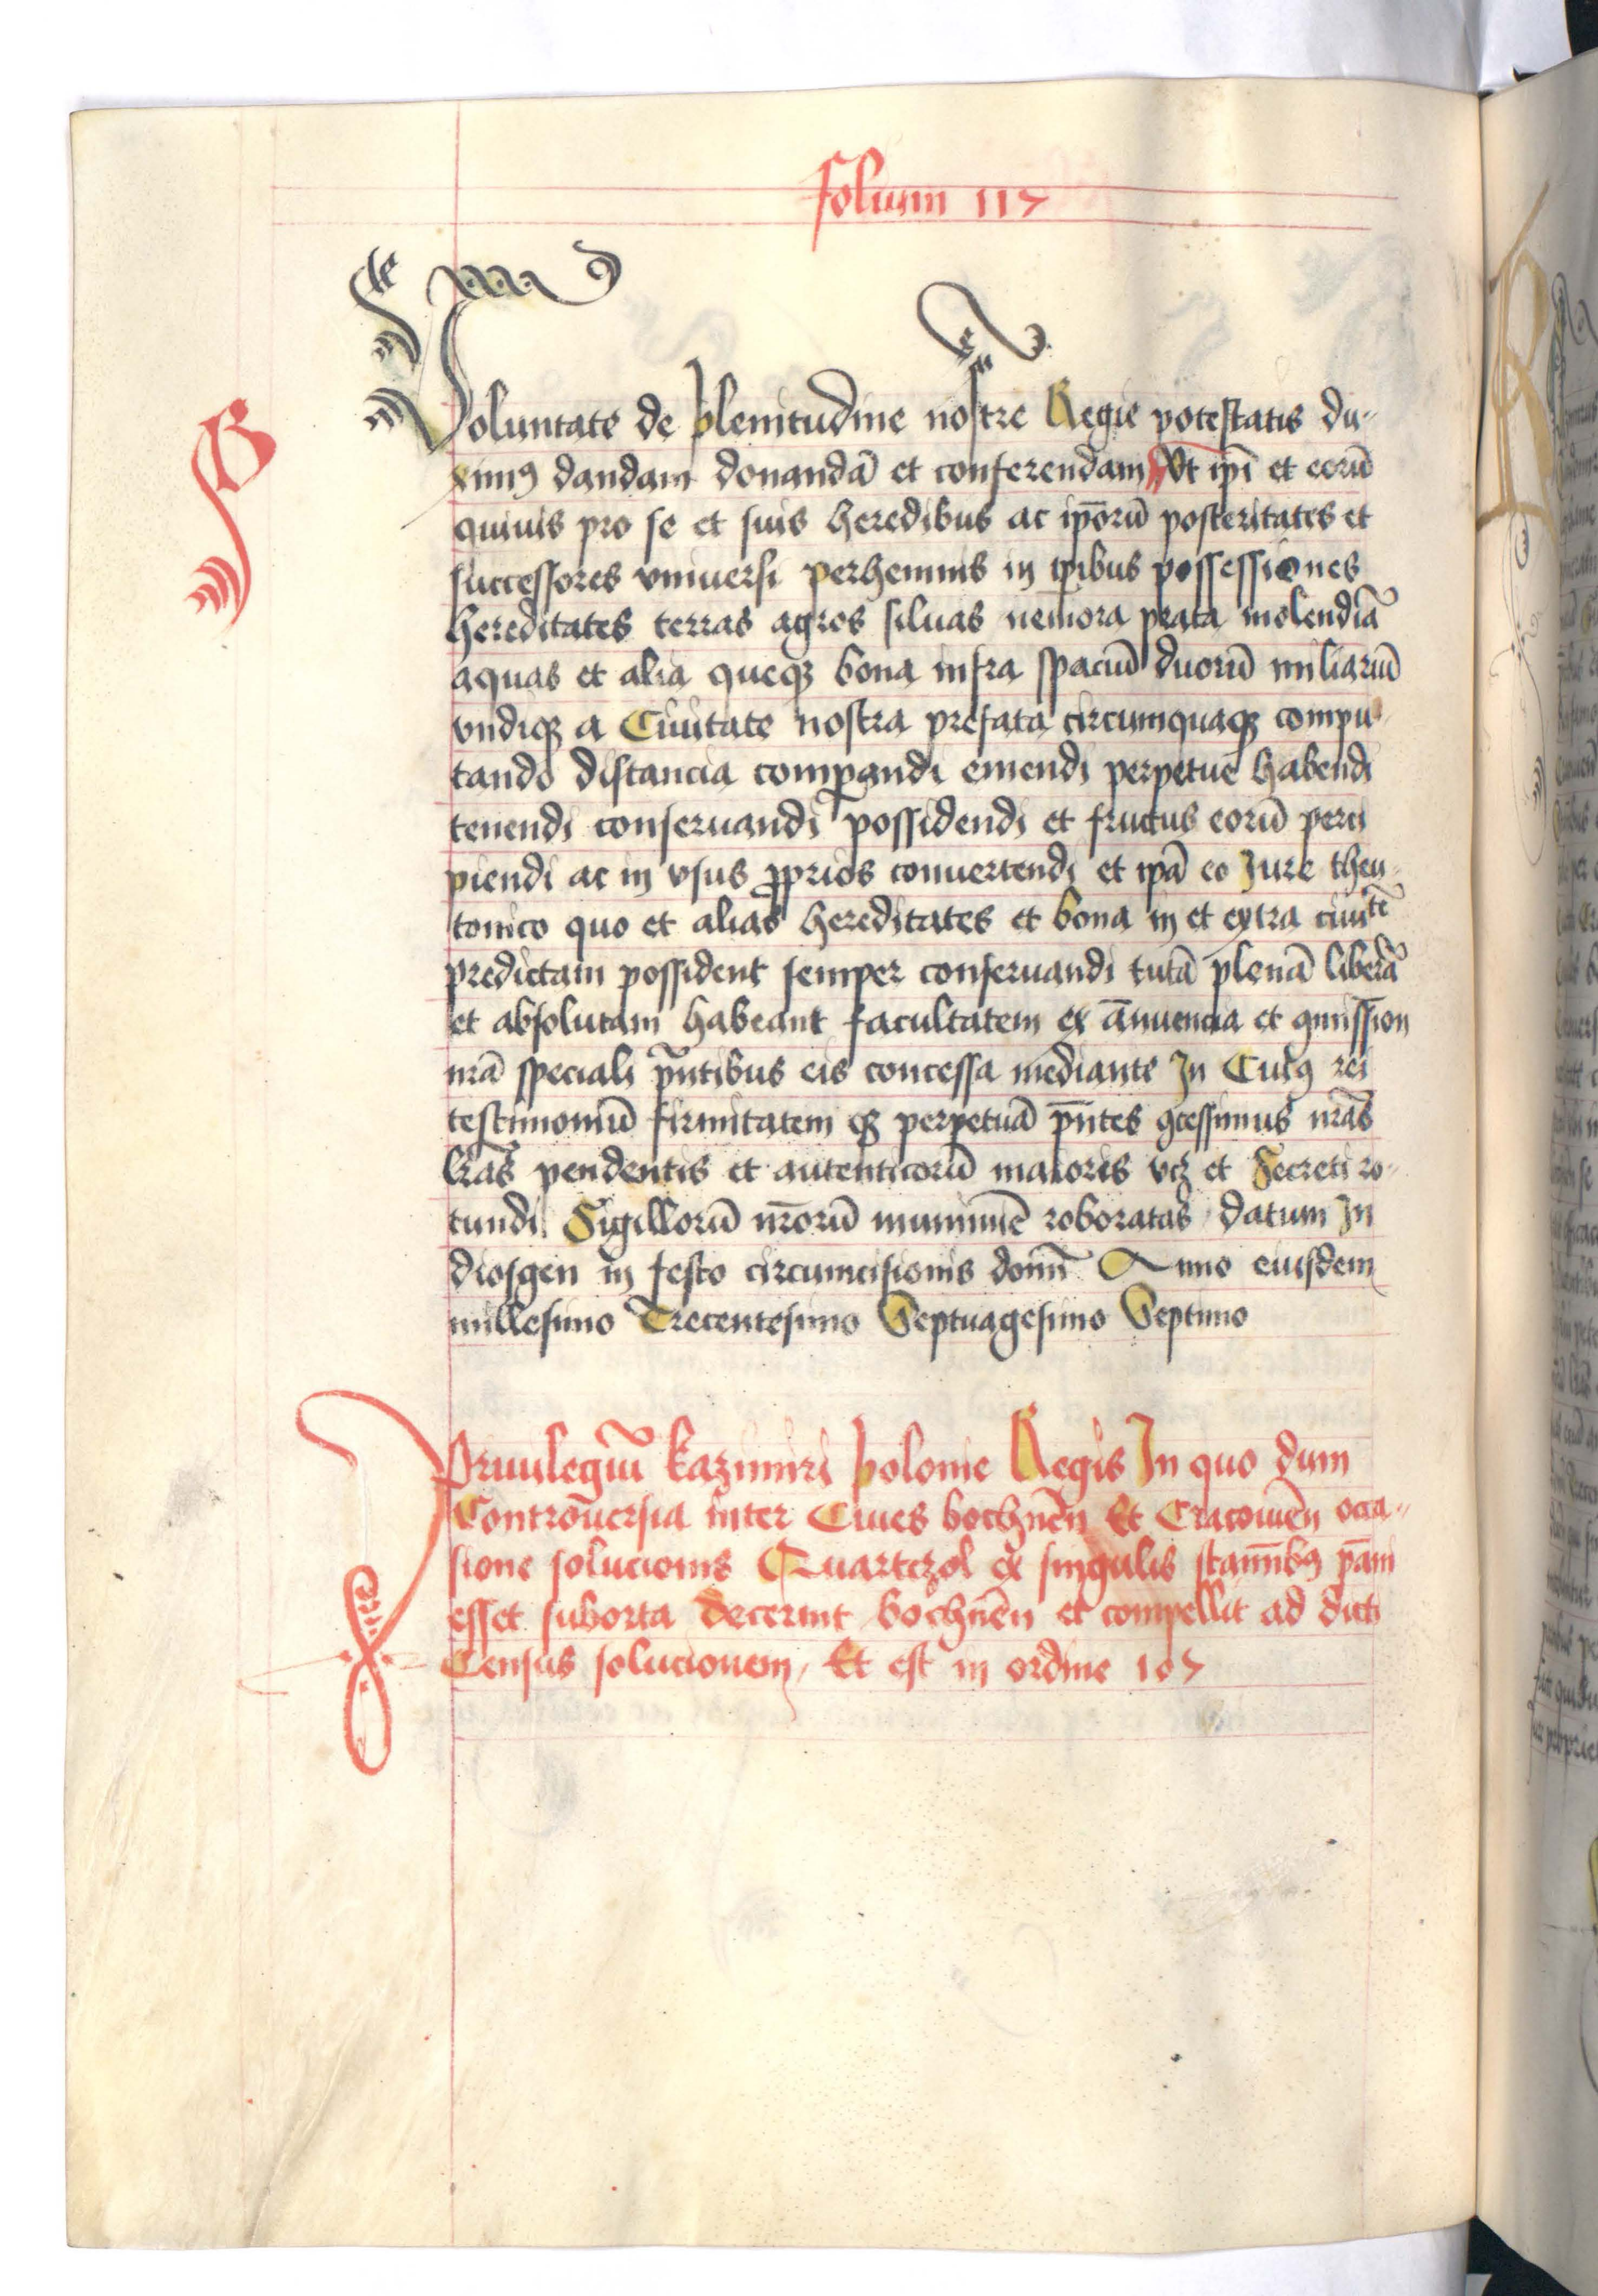 folium 117
B
Voluntate de plenitudine nostre Regie potestatis du-
ximꝰ dandam donandā et conferendam Vt ip̄i et eorū
quiuis pro se et suis heredibus ac ip̄orū posteritates et
successores vniuersi perhennis in tp̄ibus possessiones
hereditates terras agros siluas nemora prata molendīa
aquas et alia queqꝫ bona infra spaciū duorū miliariū
vndiqꝫ a Ciuitate nostra prefata circumquaqꝫ compu-
tando distancia comparandi emendi perpetue habendi
tenendi conseruandi possidendi et fructus eorū perci
piendi ac in vsus ꝓprios conuertendi et ip̄a eo Jure theu-
tonico quo et alias hereditates et bona in et extra ciuitē
predictam possident semper conseruandi tutā plenā liberā
et absolutam habeant facultatem ex ānuencia et ꝯmission
nrā speciali pn̄tibus eis concessa mediante In Cuiꝰ rei
testimoniū firmitatem qꝫ perpetuā pn̄tes ꝯcessimus nrās
lrās pendentis et autenticorū maioris vcꝫ et Secreti ro-
tundi Sigillorū nrōrū munimīe roboratas datum In
diosgen in festo circumcisionis domī Anno eiusdem
millesimo Trecentesimo Septuagesimo Septimo
Priuilegiū kazimiri polonie Regis In quo dum
Controūersia inter Ciues bochnēn Et Cracouiēn occa-
sione solucionis Quartczol ex singulis stamībꝰ pāni
esset suborta decernit bochnēn et compellit ad dicti
Census solucionem, Et est in ordine 107